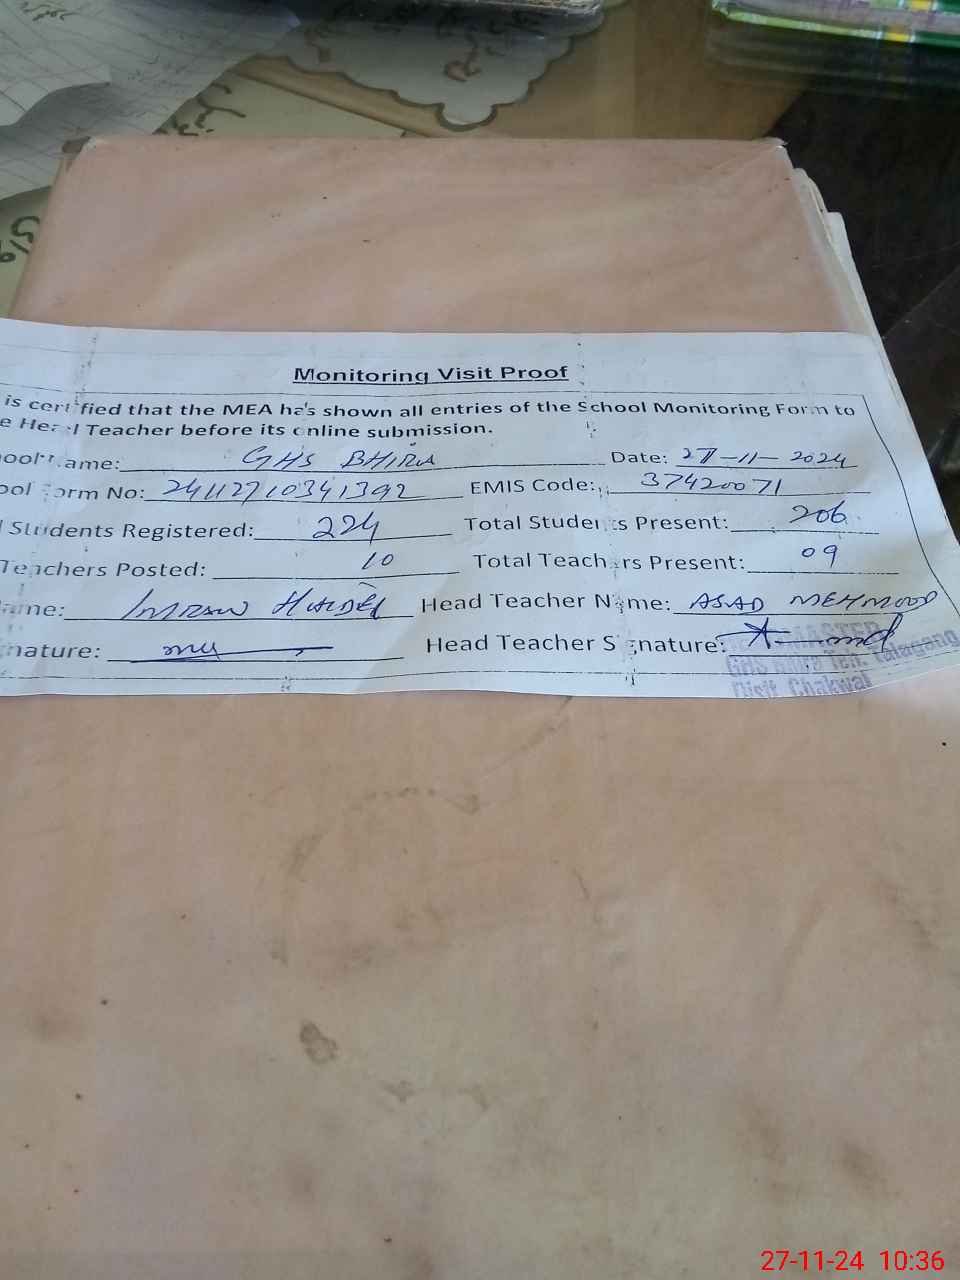 Monitoring Visit Proof
is certified that the MEA has shown all entries of the School Monitoring Form to
e Head Teacher before its online submission.
ool Name: GHS BHIRA Date: 27-11-2024
ool Form No: 24112710341392 EMIS Code: 37420071
l Students Registered: 224 Total Students Present: 206
Teachers Posted: 10 Total Teachers Present: 09
ame: IMRAN HAIDER Head Teacher Name: ASAD MEHMOOD
nature: Head Teacher Signature:
MASTER
GHS Teh. Talagang
Distt. Chakwal
27-11-24 10:36